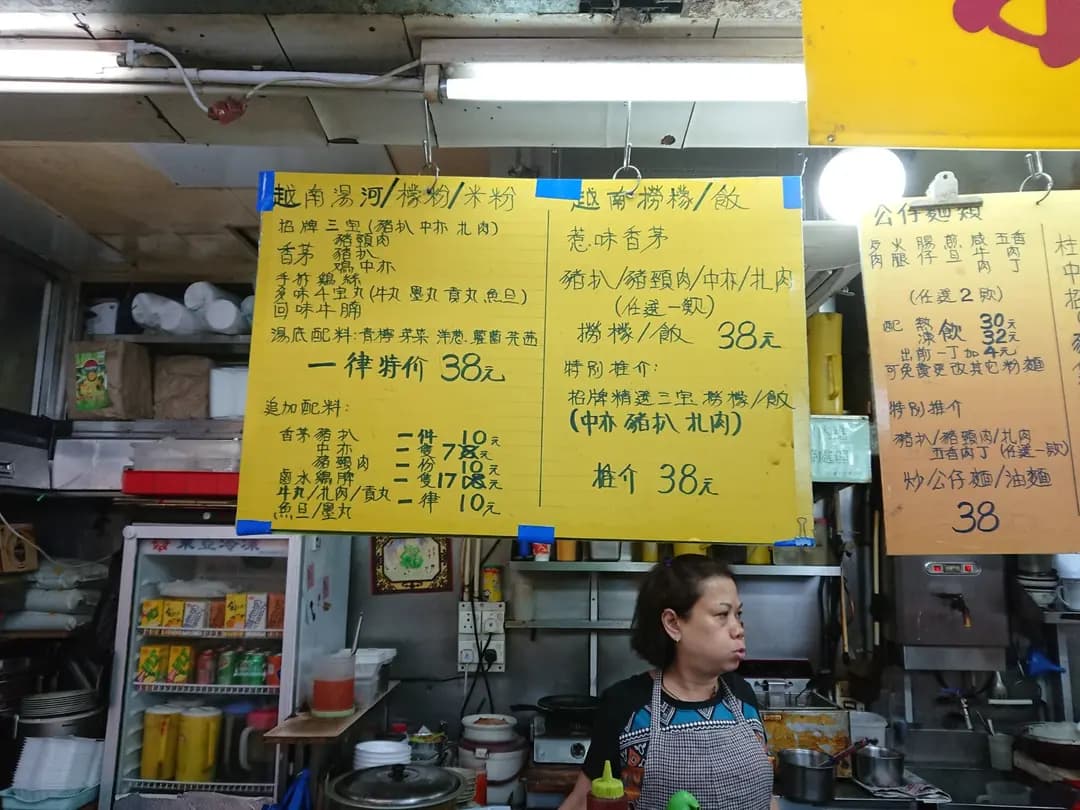 越南湯河/檬粉/米粉
招牌三宝(豬扒中亦扎肉)
豬頸肉
香茅 豬扒
鴻中亦
手拆鷄絲
多味牛宝丸(牛丸 墨丸 貢丸 魚旦)
回味牛腩
湯底配料:青檸 芽菜 洋葱 蘿蔔 芫茜
一律特价 38元
追加配料:
香茅豬扒 一件 10元
中亦 一隻 7元
豬頸肉 一份 10元
鹵水鷄脾 一隻 17元
牛丸/扎肉/貢丸
魚旦/墨丸 一律 10元
越南撈檬/飯
惹味香茅
豬扒/豬頸肉/中亦/扎肉
(任選一款)
撈檬/飯 38元
特别推介:
招牌精選三宝撈檬/飯
(中亦 豬扒 扎肉)
推介 38元
公仔麵類
火腿 腸仔 煎旦 咸牛肉 五香肉丁
(任選2款)
配 熱 30元
凍飲 32元
出前一丁加4元
可免費更改其它粉麵
特别推介
豬扒/豬頸肉/扎肉
五香肉丁(任選一款)
炒/公仔麵/油麵
38
桂
中